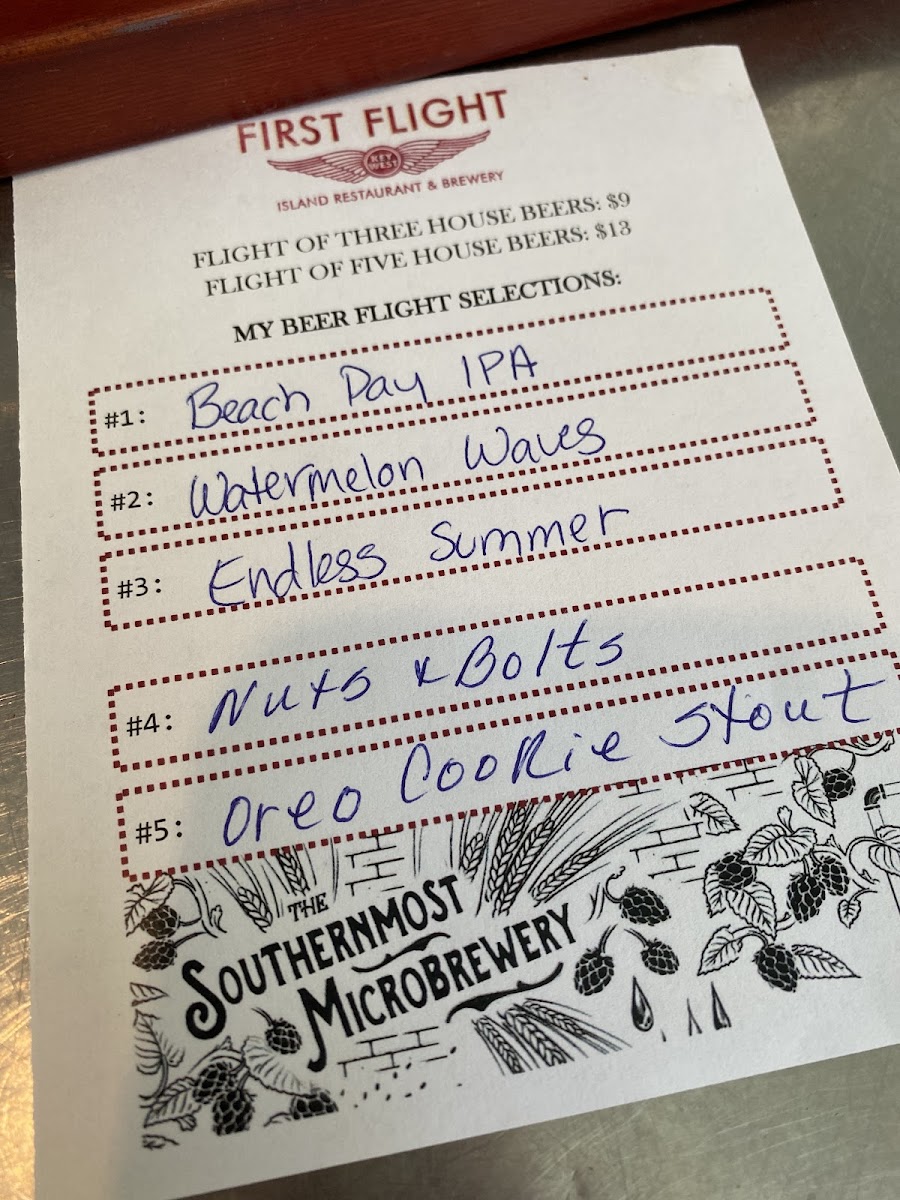 FIRST FLIGHT
KEY WEST
ISLAND RESTAURANT & BREWERY
FLIGHT OF THREE HOUSE BEERS: $9
FLIGHT OF FIVE HOUSE BEERS: $13
MY BEER FLIGHT SELECTIONS:
#1: Beach Day IPA
#2: Watermelon Waves
#3: Endless Summer
#4: Nuts & Bolts
#5: Oreo Cookie Stout
THE
SOUTHERNMOST
MICROBREWERY